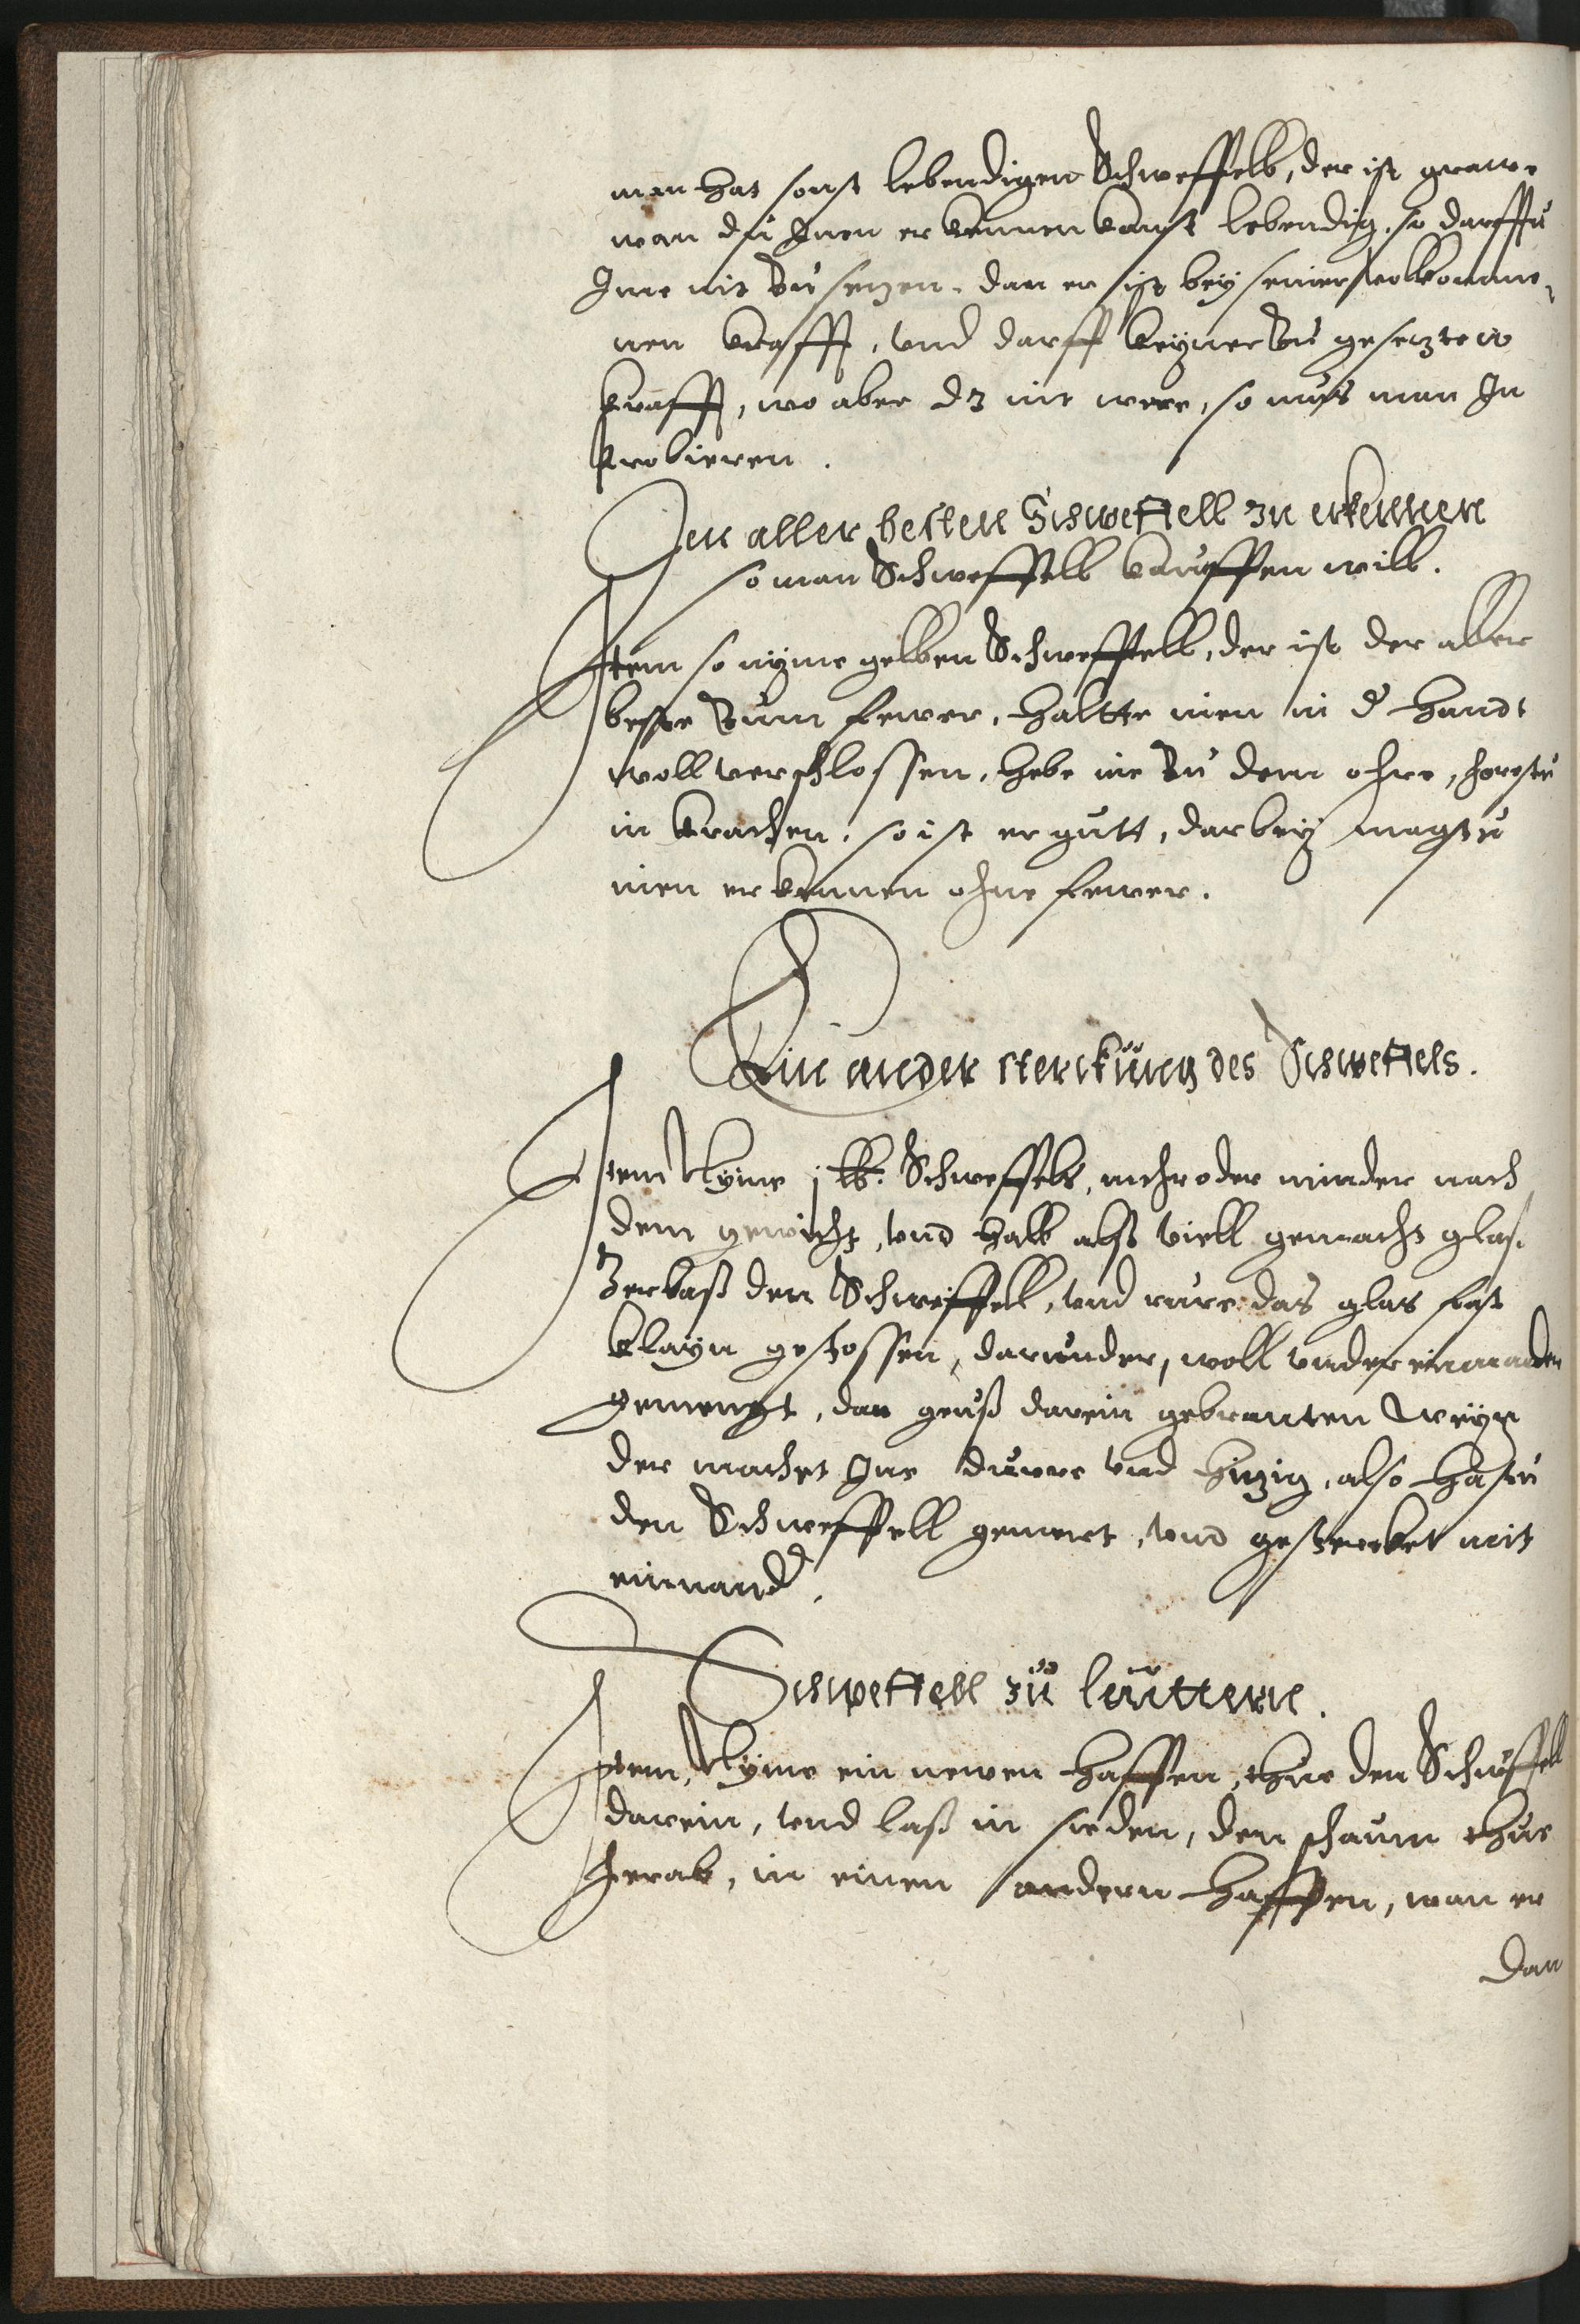 man hat sonst lebendigen Schweffell, der ist graw.
wan du Inen erkennen kanst lebendig, so darffstu
Ime nit zu setzen. dan er ist bey seiner volkomme,
nen krafft, vnd darff keyner zu gesetzten
krafft, wo aber dz nit were, so muss man In
probieren.
Den aller besten Schweffell zu erkennen
so man Schweffell kauffen will.
Item so nyme gelben Schweffell, der ist der aller
beste zum fewer, haltte inen in d handt
woll verschlossen, hebe in zu dem ohre, horestu
in krachen, so ist er gutt, darbey magstu
inen erkennen ohne fewer.
Ein ander sterckung des Schweffels.
Item Nyme j lb. Schweffels, mehr oder minder nach
dem gewicht, vnd halb alss viell gemacht glas.
Zerlaß den Schweffell, vnd rure das glas fast
klayn gestossen, darunder, woll vnder einannder
gemengt, dan geuß darein gebranten weyn
der machet Ine durre vnd hitzig, also hastu
den Schweffell gemert, vnd gesterckt mit
einnand.
Schweffell zu leuttern.
Item, Nyme ein newen haffen, thue den Schweffell
darein, vnd laß in sieden, den schaum thue
herab, in einen andern haffen, wan er
dan